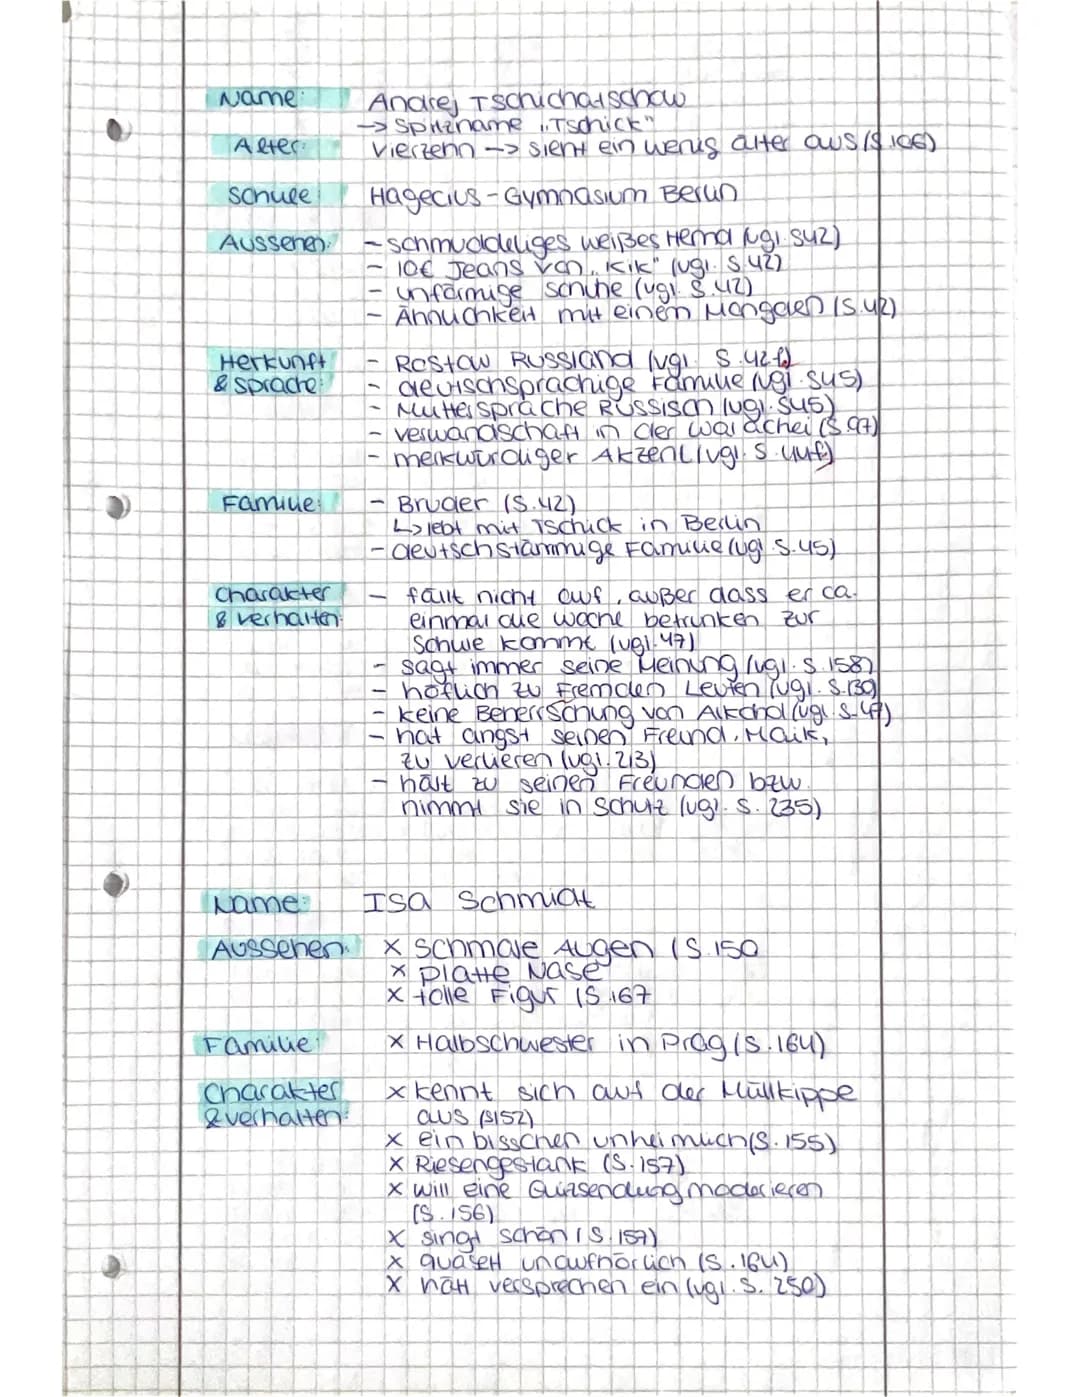 Name: Andrej Tschichatschow
-> Spitzname „Tschick"
Alter: Vierzehn -> sieht ein wenig älter aus (S.106)
Schule: Hagecius-Gymnasium Berlin
Aussehen: - schmuddeliges weißes Hemd (vgl. S42)
- 10€ Jeans von „Kik" (vgl. S.42)
- unförmige Schuhe (vgl. S.42)
- Ähnlichkeit mit einem Mongolen (S.42)
Herkunft - Rostow Russland (vgl. S.42f)
& Sprache: - deutschsprachige Familie (vgl. S45)
- Muttersprache Russisch (vgl. S45)
- verwandschaft in der Walachei (S.97)
- merkwürdiger Akzent (vgl. S.44f)
Familie: - Bruder (S.42)
↳ lebt mit Tschick in Berlin
- deutschstämmige Familie (vgl. S.45)
Charakter - fällt nicht auf, außer dass er ca.
& verhalten: einmal die woche betrunken zur
Schule kommt (vgl. 47)
- sagt immer seine Meinung (vgl. S.158)
- höflich zu Fremden Leuten (vgl. S.130)
- keine Beherrschung von Alkohol (vgl. S.47)
- hat angst seinen Freund, Maik,
zu verlieren (vgl. 213)
- hält zu seinen Freunden bzw.
nimmt sie in Schutz (vgl. S. 235)
Name: Isa Schmidt
Aussehen: x schmale Augen (S.150
x platte Nase
x tolle Figur (S.167
Familie: x Halbschwester in Prag (S.164)
Charakter x kennt sich auf der Müllkippe
& verhalten: aus (S152)
x ein bisschen unheimlich (S.155)
x Riesengestank (S.157)
x will eine Quizsendung moderieren
(S.156)
x singt schön (S.157)
x quaselt unaufhörlich (S.164)
x hält versprechen ein (vgl. S. 250)